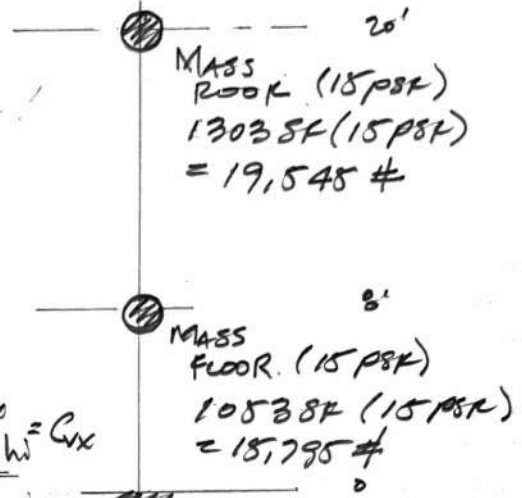 20'
MASS
ROOF (15 PSF)
1303 SF (15 PSF)
= 19,545 #
8'
MASS
FLOOR. (15 PSF)
1053 SF (15 PSF)
= 15,795 #
= Cvx
0